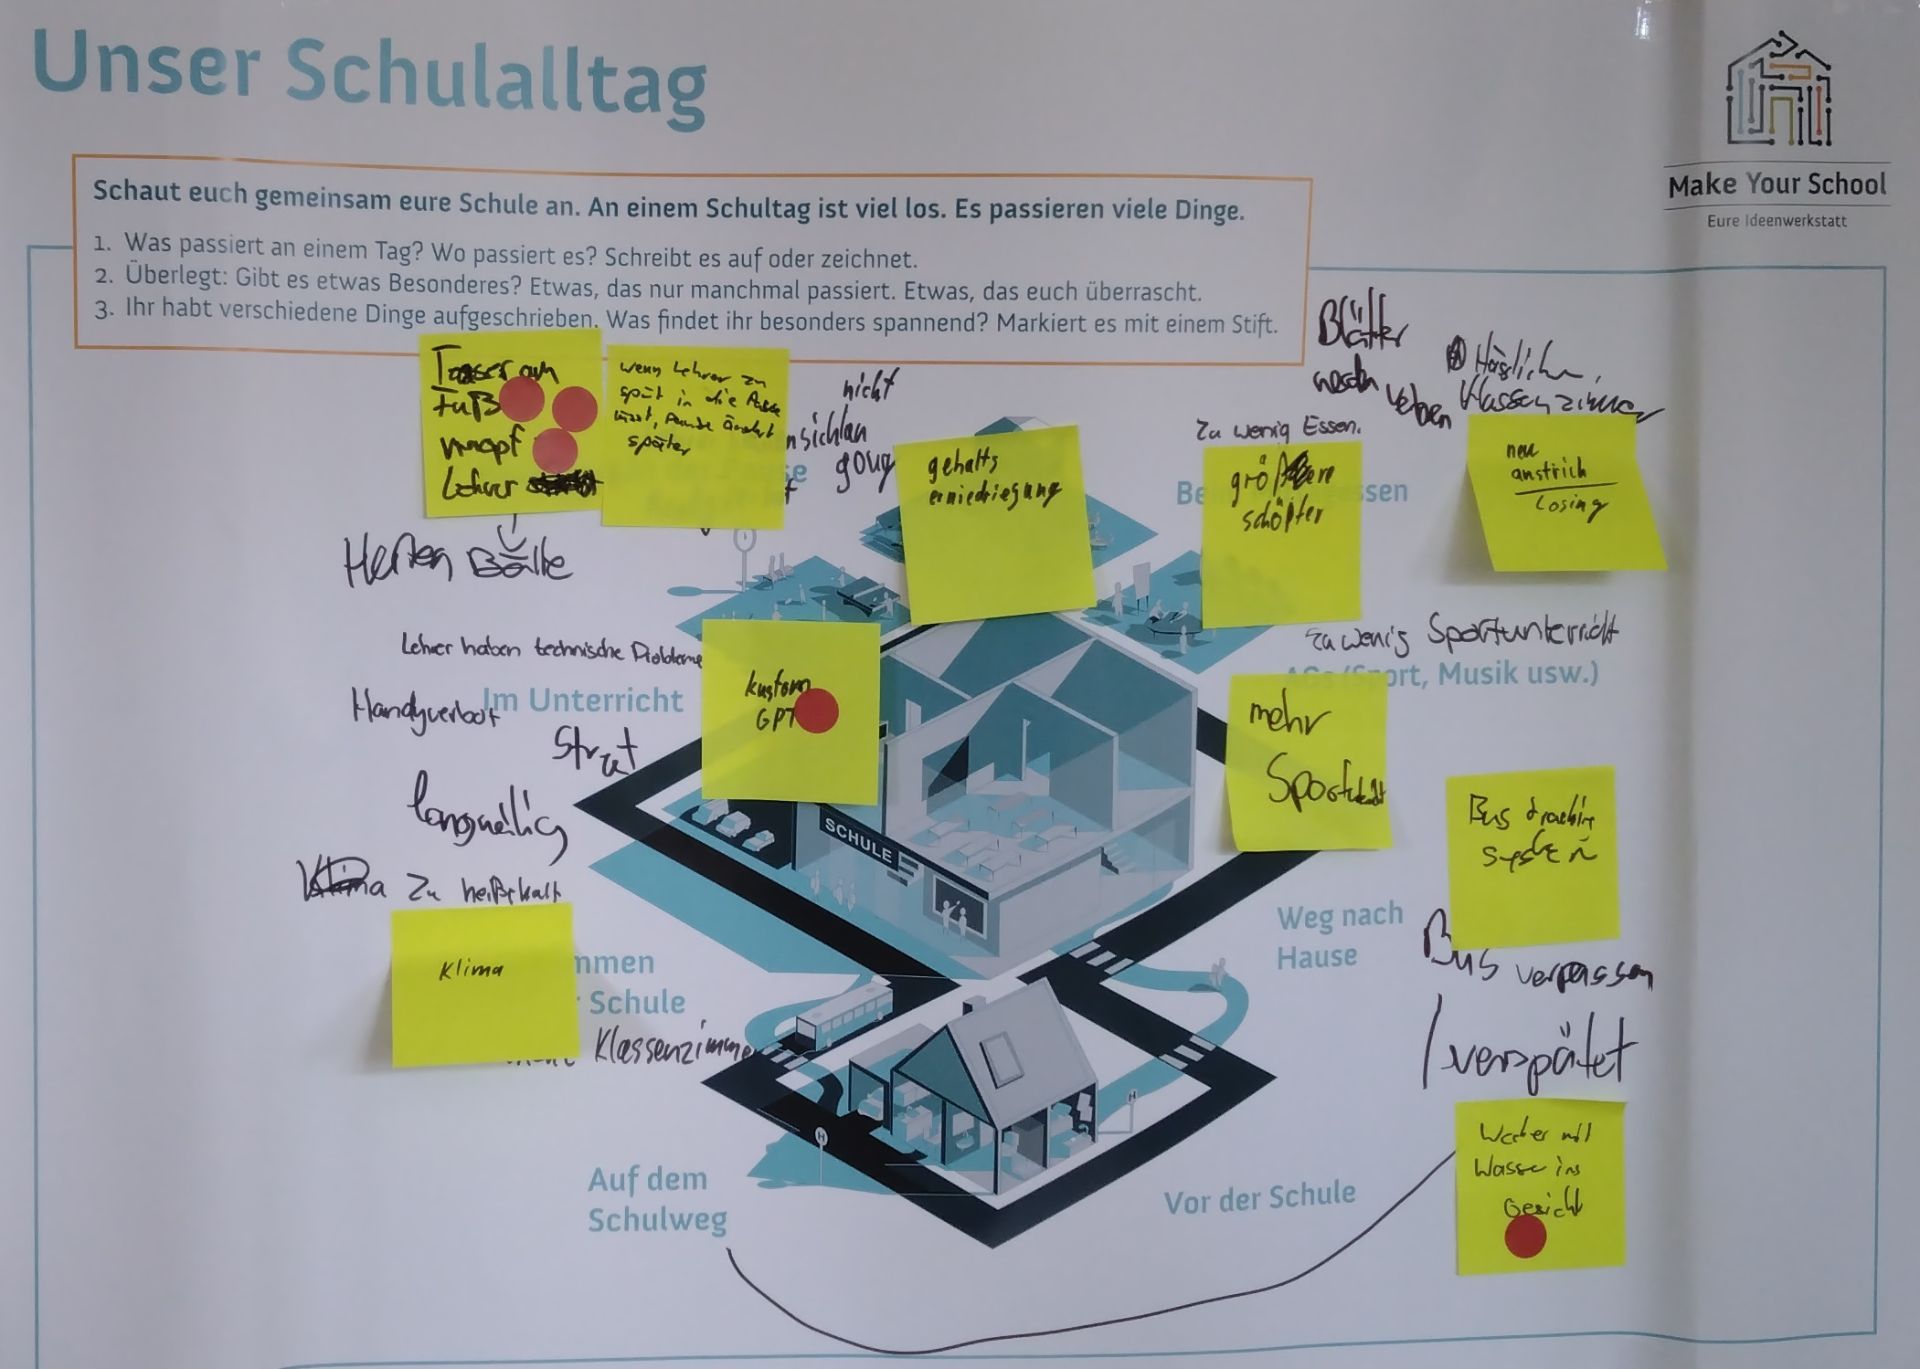 Unser Schulalltag
Make Your School
Eure Ideenwerkstatt
Schaut euch gemeinsam eure Schule an. An einem Schultag ist viel los. Es passieren viele Dinge.
1. Was passiert an einem Tag? Wo passiert es? Schreibt es auf oder zeichnet.
2. Überlegt: Gibt es etwas Besonderes? Etwas, das nur manchmal passiert. Etwas, das euch überrascht.
3. Ihr habt verschiedene Dinge aufgeschrieben. Was findet ihr besonders spannend? Markiert es mit einem Stift.
Fuß
knopf
Lehrer
wenn Lehrer zu
spät in die
später
nicht
gehalts
erniedriegung
Zu wenig Essen.
größere
schöpfer
Blätter
Klassenzimmer
neu
anstrich
Losing
Lehrer haben technische Probleme
Handyverbot
Im Unterricht
langweilig
Klima zu heiß/kalt
Klima
mmen
Schule
Klassenzimme
kustom
GPT
SCHULE
zu wenig Sportunterricht
ort, Musik usw.)
mehr
Bus tracking
system
Weg nach
Hause
Bus verpassen
/verspätet
Wecker mit
Wasser ins
Gesicht
H
H
Auf dem
Schulweg
Vor der Schule